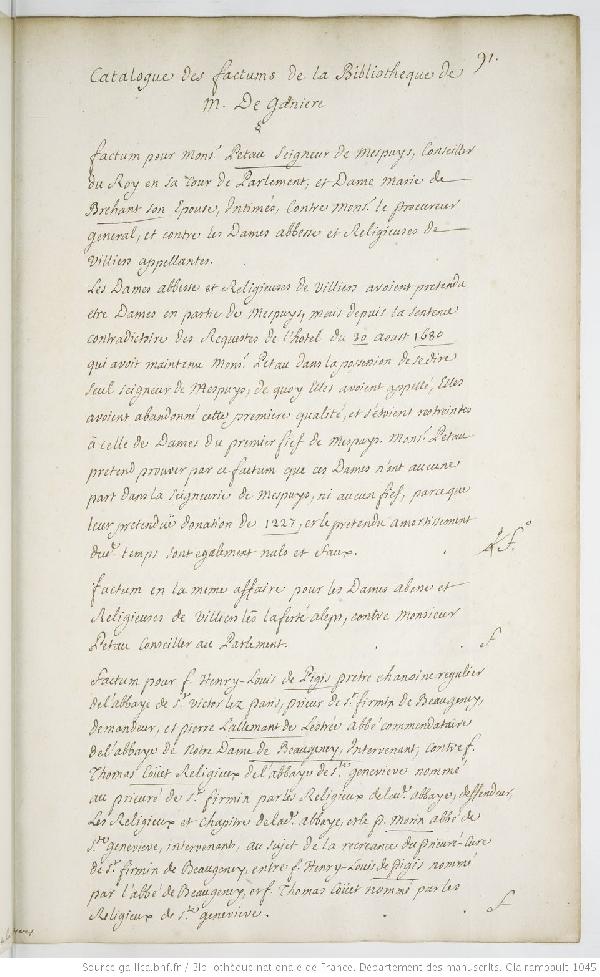 91.
Catalogue des factums de la Bibliotheque de
M. De Gæniere
factum pour Mons.r Petau Seigneur de Mespuys, Conseiller
du Roy en sa Cour de Parlement, et Dame Marie de
Brehant son Epouse, Intimés, Contre Mons.r le procureur
general, et contre les Dames abbesse et Religieuses de
Villiers appellantes.
Les Dames abbesse et Religieuses de Villiers avoient pretendu
etre Dames en partie de Mespuys, mais depuis la sentence
contradictoire des Requestes de l'hotel du 30 aoust 1680
qui avoit maintenu Mons.r Petau dans la possession de se dire
seul seigneur de Mespuys, de quoy elles avoient appellé, Elles
avoient abandonné cette premiere qualité, et s'etoient restreintes
à celle de Dames du premier fief de Mespuys. Mons.r Petau
pretend prouver par ce factum que ces Dames n'ont aucune
part dans la Seigneurie de Mespuys, ni aucun fief, parceque
leur pretenduë donation de 1227, et le pretendu amortissement
du d.t temps sont egalement nuls et faux.
f.o
factum en la meme affaire pour les Dames abesse et
Religieuses de Villiers lès la ferté aleps, contre Monsieur
Petau Conseiller au Parlement.
f
Factum pour f. Henry-Louis de Pigis pretre chanoine regulier
de l'abbaye de S.t Victor lez paris, prieur de S.t firmin de Beaugency,
demandeur, et pierre Lallemant de Lestrée abbé commendataire
de l'abbaye de Notre Dame de Beaugency, Intervenant, Contre f.
Thomas Coüet Religieux de l'abbaye de S.te genevieve nommé
au prieuré de S.t firmin par les Religieux de lad.e abbaye, deffendeur,
Les Religieux et Chapitre de lad.e abbaye, et le p. Morin abbé de
S.te genevieve, intervenant, au sujet de la recreance du prieuré-Cure
de S.t firmin de Beaugency, entre f. Henry-Louis de Pigis nommé
par l'abbé de Beaugency, et f. Thomas Coüet nommé par les
Religieux de S.te genevieve.
f
Source gallica.bnf.fr / Bibliothèque nationale de France. Département des manuscrits. Clairambault 1045